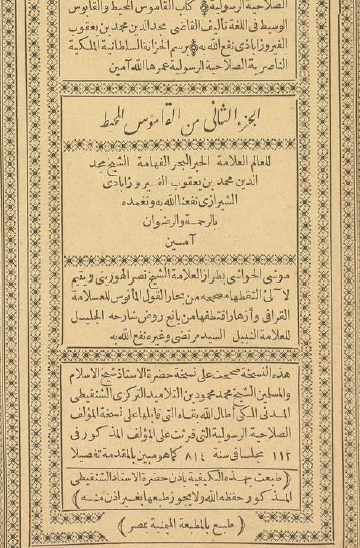 الصلاحية الرسولية كتاب القاموس المحيط والقابوس
الوسيط في اللغة تأليف القاضي مجد الدين محمد بن يعقوب
الفيروزاباذى نفع الله به برسم الخزانة السلطانية الملكية
الناصرية الصلاحية الرسولية عمرها الله آمين
الجزء الثانى من القاموس المحيط
للعالم العلامة الحبر البحر الفهامة الشيخ مجد
الدين محمد بن يعقوب الفيروزابادى
الشيرازى نفعنا الله به وتغمده
بالرحمة والرضوان
آمين
موشى الحواشى بطراز العلامة الشيخ نصر الهورينى ويتيم
لآلئ التقطها مصححه من بحار القول المأنوس للعلامة
القرافى وأزهار اقتطفها من يانع روض شارحه الجليل
للعلامة النبيل السيد مرتضى وغيره نفع الله به
هذه النسخة صححت على نسخة حضرة الاستاذ شيخ الاسلام
والمسلمين الشيخ محمد محمود بن التلاميد التركزى الشنقيطى
المدنى المكى أطال الله بقاءه التى قابلها على نسخة المؤلف
الصلاحية الرسولية التى قرئت على المؤلف المذكور فى
١١٢ مجلسا فى سنة ٨١٤ كما هو مبين بالمقدمة تفصيلا
(طبعت بهذه الكيفية باذن حضرة الاستاذ الشنقيطى
المذكور حفظه الله ولا يجوز طبعها بغير اذن منه)
(طبع بالمطبعة الميمنية بمصر)